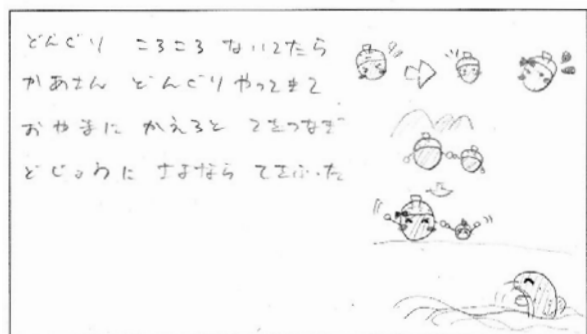 どんぐり ころころ ないてたら
かあさん どんぐり やってきて
おやまに かえろと てをつなぎ
どじょうに さよなら てをふった